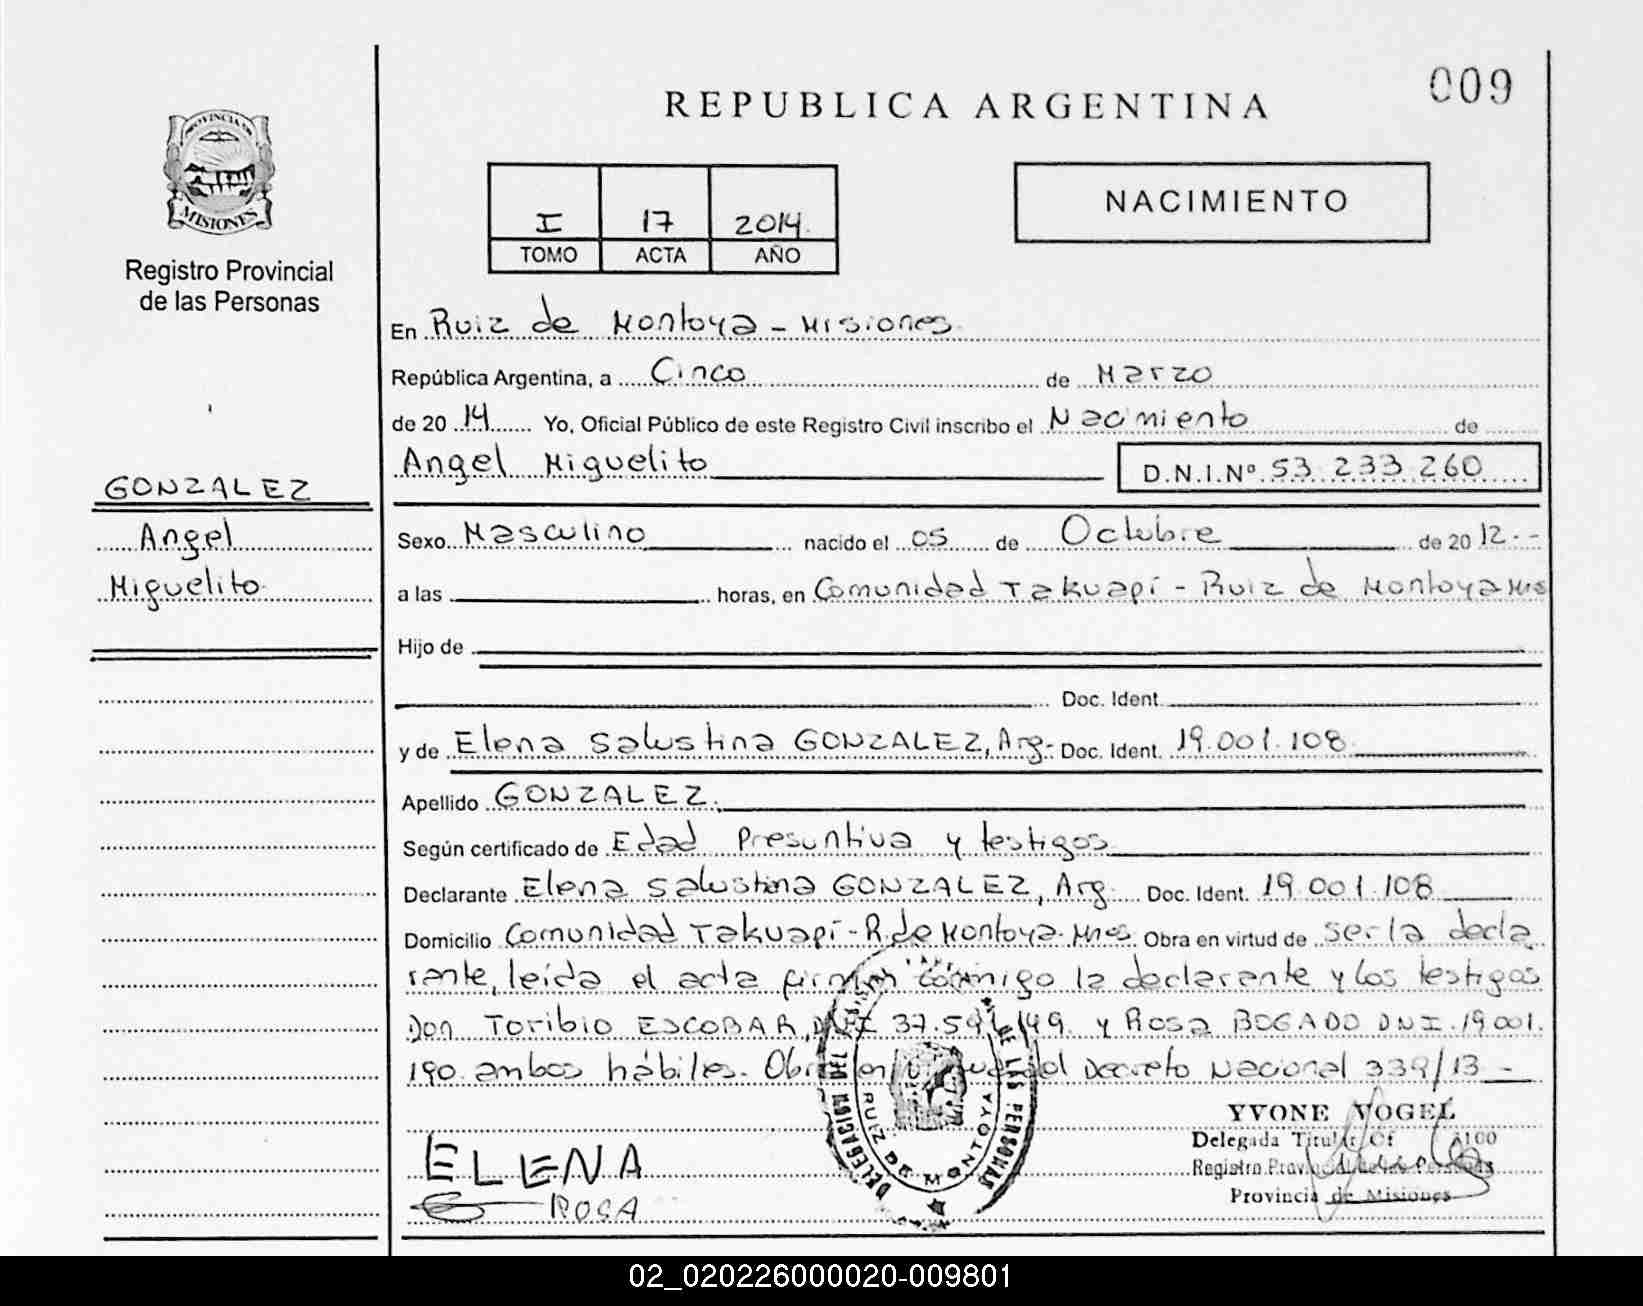 009
REPUBLICA ARGENTINA
PROVINCIA DE
MISIONES
Registro Provincial
de las Personas
I 17 2014.
TOMO ACTA AÑO
NACIMIENTO
En Ruiz de Montoya - Misiones.
República Argentina, a Cinco de Marzo
de 20 14 Yo, Oficial Público de este Registro Civil inscribo el Nacimiento de
Angel Miguelito D.N.I.Nº 53.233.260
GONZALEZ
Angel
Miguelito.
Sexo Masculino nacido el 05 de Octubre de 20 12.--
a las horas, en Comunidad Takuapí - Ruiz de Montoya Mis
Hijo de
Doc. Ident.
y de Elena Salustina GONZALEZ, Arg.- Doc. Ident. 19.001.108
Apellido GONZALEZ.
Según certificado de Edad Presuntiva y testigos
Declarante Elena Salustina GONZALEZ, Arg. Doc. Ident. 19.001.108
Domicilio Comunidad Takuapí - R. de Montoya. Mnes. Obra en virtud de ser la decla
rante, leída el acta firman conmigo la declarante y los testigos
Don Toribio ESCOBAR, DNI 37.591.149. y Rosa BOGADO DNI.19.001.
190. ambos hábiles. Obra en virtud del Decreto Nacional 339/13 -
DELEGACION DEL DE LAS PERSONAS
RUIZ DE MONTOYA
YVONE VOGEL
Delegada Titular Of 100
Registro Provincial de las Personas
Provincia de Misiones
ELENA
ROSA
02_020226000020-009801